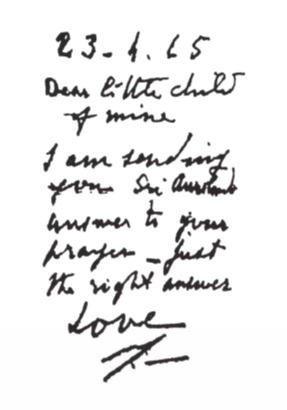 23-4.65
Dear little child
of mine
I am sending
you Sri Aurobindo's
answer to your
prayer - just
the right answer
Love